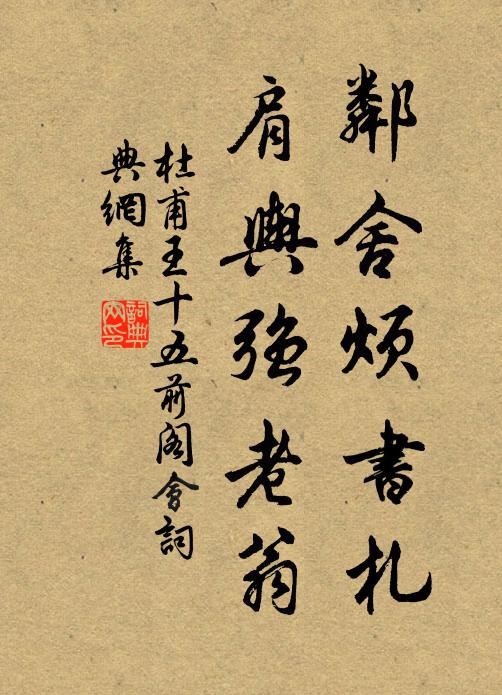 鄰舍煩書札
肩輿強老翁
杜甫王十五前閣會詞
典網集
詞典
网印